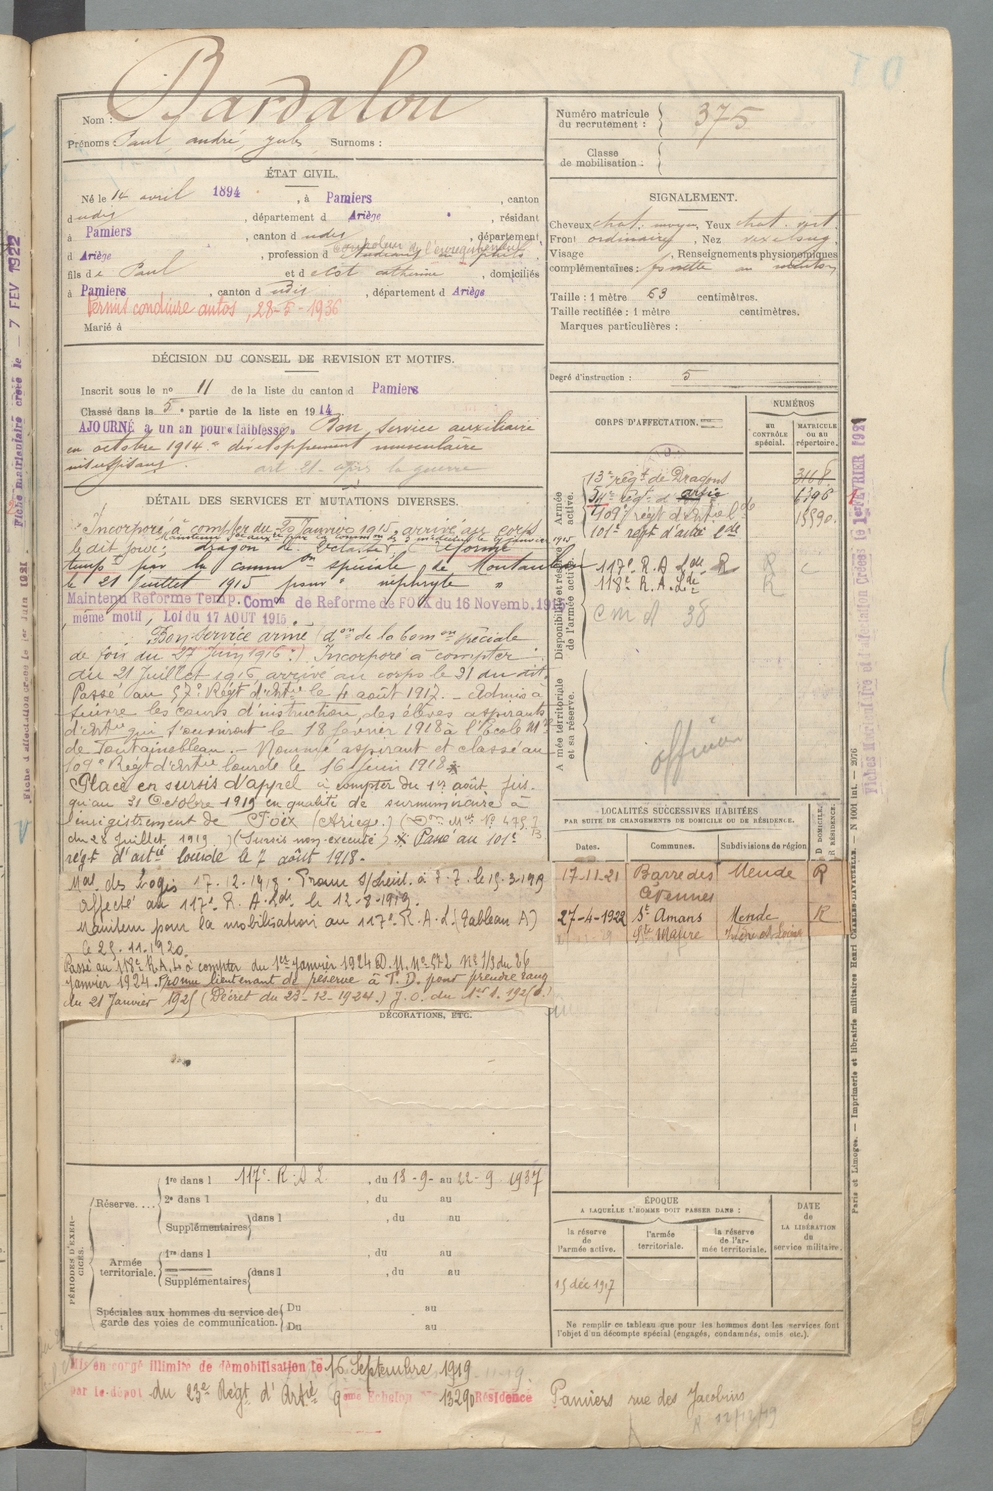 Bardalou
Nom :
Prénoms : Paul, andré, jules Surnoms :
ÉTAT CIVIL.
Né le 14 avril 1894, à Pamiers, canton
dudit, département d Ariège, résidant
à Pamiers, canton dudit, département
d Ariège, profession d
fils de Paul et d'Est catherine, domiciliés
à Pamiers, canton dudit, département d Ariège
Permis conduire autos, 28-5-1936
Marié à
Numéro matricule du recrutement : 375
Classe de mobilisation :
SIGNALEMENT.
Cheveux chat. moyen Yeux chat. vert
Front ordinaire, Nez
Visage, Renseignements physionomiques
complémentaires : fossette au menton
Taille : 1 mètre 63 centimètres.
Taille rectifiée : 1 mètre centimètres.
Marques particulières :
Degré d'instruction : 5
DÉCISION DU CONSEIL DE REVISION ET MOTIFS.
Inscrit sous le n° 11 de la liste du canton d Pamiers
Classé dans la 5e partie de la liste en 1914
AJOURNÉ à un an pour «faiblesse» Bon service auxiliaire
en octobre 1914 développement musculaire
insuffisant.
art. 21 après la guerre
DÉTAIL DES SERVICES ET MUTATIONS DIVERSES.
Incorporé à compter du 20 Janvier 1915, arrivé au corps
le dit jour; dragon de 2e classe. Réformé
temp. par la common spéciale de Montauban
le 21 Juillet 1915 pour « néphryte »
Maintenu Réforme Temp. Comon de Réforme de FOIX du 16 Novemb. 1915
même motif, Loi du 17 AOUT 1915
Bon service armé (don de la Comon spéciale
de foix du 27 Juin 1916.) Incorporé à compter
du 21 Juillet 1916, arrivé au corps le 31 du dit.
Passé au 57e Régt d'Artie le 4 août 1917. - Admis à
suivre les cours d'instruction des élèves aspirants
d'Artie qui s'ouvriront le 18 février 1918 à l'Ecole Mre
de Fontainebleau. - Nommé aspirant et classé au
109e Régt d'Artie lourde le 16 Juin 1918
Placé en sursis d'appel à compter du 1er août jus-
qu'au 31 Octobre 1919 en qualité de surnuméraire à
l'enregistrement de Foix (Ariège)
du 28 Juillet 1919) (Sursis non exécuté) Passé au 101e
régt d'artie lourde le 7 août 1918.
Mal des Logis 17.12.1918.
Affecté au 117e R.A.Lde le 12-8-1919.
Maintenu pour la mobilisation au 117e R.A.L (Tableau A)
le 25.11.1920.
Passé au 118e R.A.L. à compter du 1er Janvier 1924 D.M. N° 572 N° 1/3 du 26
Janvier 1924. Promu lieutenant de réserve à T.D. pour prendre rang
du 21 Janvier 1925 (Décret du 23-12-1924.)
DÉCORATIONS, ETC.
CORPS D'AFFECTATION.
NUMÉROS
au CONTRÔLE spécial.
MATRICULE ou au répertoire.
Armée active.
13e régt de Dragons 3118
57e régt d'artie 6396
109e régt d'art. lde 15590
101e régt d'artie lde
Disponibilité et réserve de l'armée active.
117e R.A.Lde R
118e R.A.Lde R
C M A 38
Armée territoriale et sa réserve.
officier
LOCALITÉS SUCCESSIVES HABITÉES
PAR SUITE DE CHANGEMENTS DE DOMICILE OU DE RÉSIDENCE.
Dates. Communes. Subdivisions de région. D DOMICILE. R RÉSIDENCE.
17-11-21 Barre des Cévennes Mende R
27-4-1922 St Amans Mende R
Ste Maure Indre et Loire
PÉRIODES D'EXERCICES.
Réserve.... 1re dans l 117e R.A.L, du 13-9- au 22-9 1937
2e dans l, du au
Supplémentaires dans l, du au
Armée territoriale. 1re dans l, du au
Supplémentaires dans l, du au
Spéciales aux hommes du service de garde des voies de communication. Du au
Du au
ÉPOQUE
A LAQUELLE L'HOMME DOIT PASSER DANS :
la réserve de l'armée active.
l'armée territoriale.
la réserve de l'armée territoriale.
DATE de LA LIBÉRATION du service militaire.
15 déc 1917
Ne remplir ce tableau que pour les hommes dont les services font
l'objet d'un décompte spécial (engagés, condamnés, omis, etc.).
Mis en congé illimité de démobilisation le 16 Septembre 1919
par le dépôt du 23e Régt d'Artie 9eme Echelon N° 13290 Résidence Pamiers rue des Jacobins
R 12/12/19
Paris et Limoges. — Imprimerie et librairie militaires Henri CHARLES-LAVAUZELLE. N 1001 int. — 2076
Fiches Matriculaire et d'affectation Créées le 1er FEVRIER 1921
Fiche matriculaire créée le — 7 FEV 1922
Fiche d'affectation créée le 1er Juin 1921